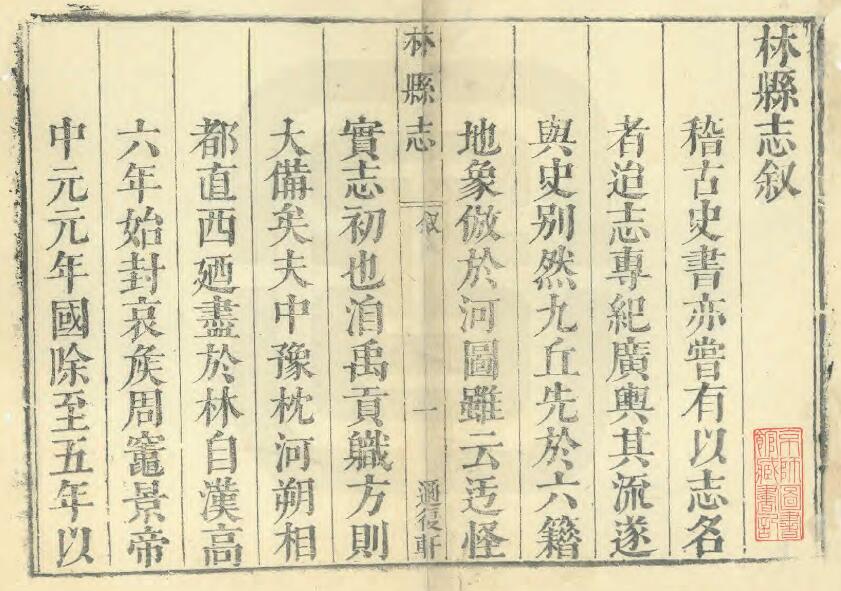 林縣志叙
稽古史書亦嘗有以志名
者迨志專紀廣輿其流遂
與史别然九丘先於六籍
地象倣於河圖雖云迃怪
林縣志
叙
一
適復軒
實志初也洎禹貢職方則
大備矣夫中豫枕河朔相
都直西廼盡於林自漢高
六年始封哀矦周竈景帝
中元元年國除至五年以
京師圖書
館藏書記